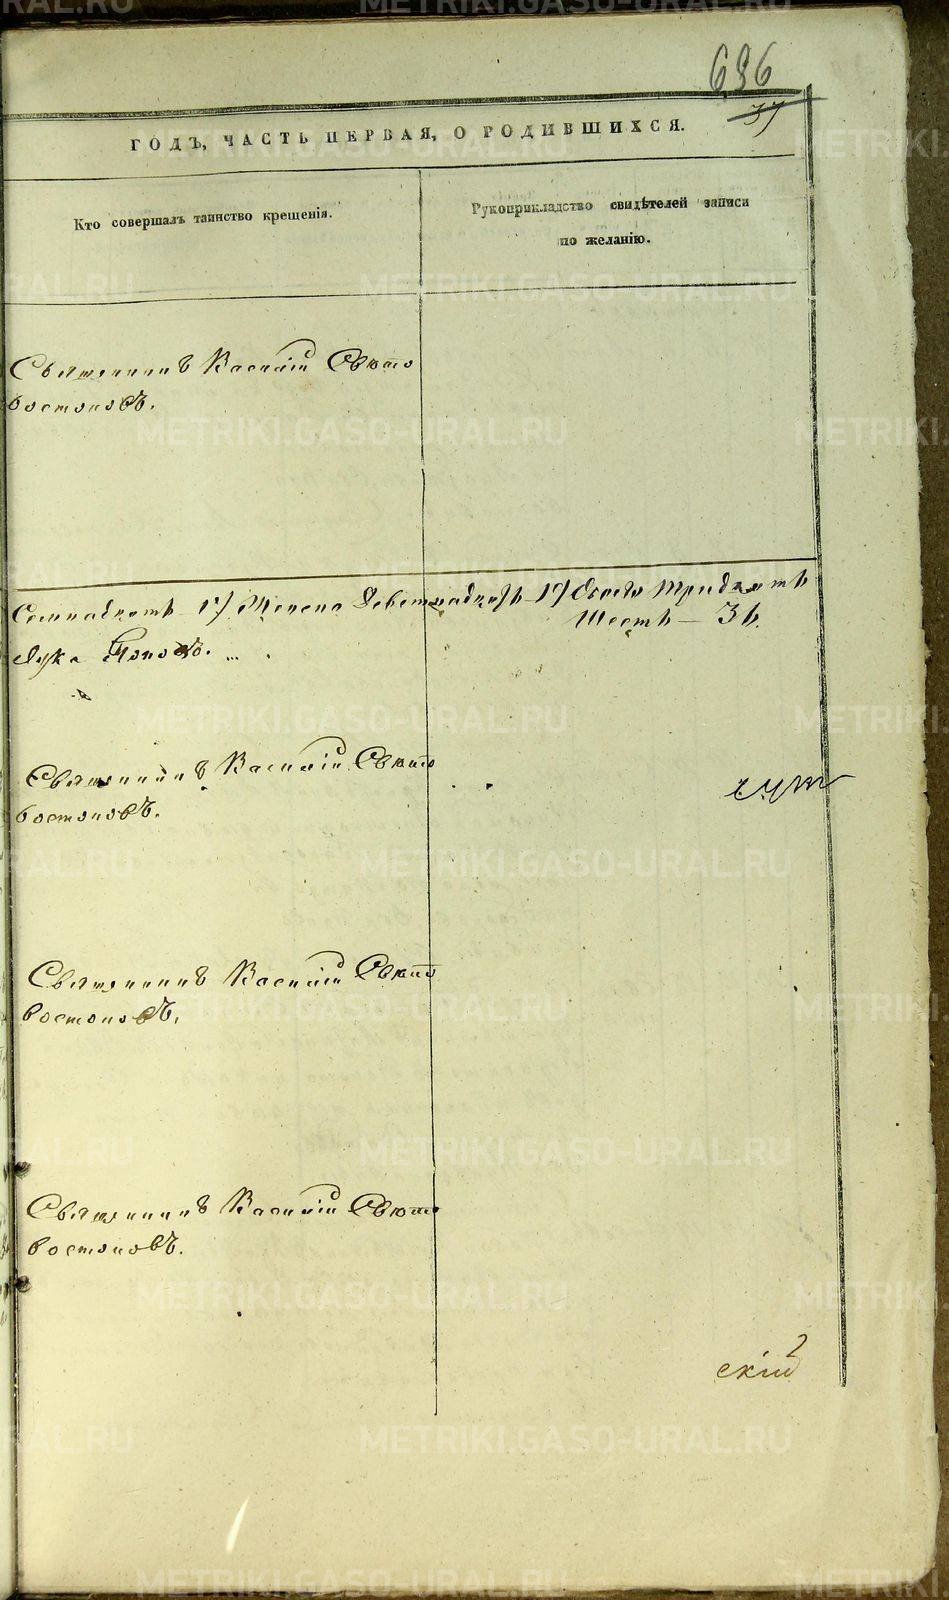 696
37
ГОДЪ, ЧАСТЬ ПЕРВАЯ, О РОДИВШИХСЯ.
Кто совершалъ таинство крещенія.
Рукоприкладство свидѣтелей записи
по желанію.
Священникъ Василій Свѣто
востоковъ.
Семнадцать 17 Женска Девятнадцать 19 Обоего Тридцать
Шесть — 36.
Лука Поповъ.
Священникъ Василій Свѣто
востоковъ.
Священникъ Василій Свѣто
востоковъ.
Священникъ Василій Свѣто
востоковъ.
скій
METRIKI.GASO-URAL.RU